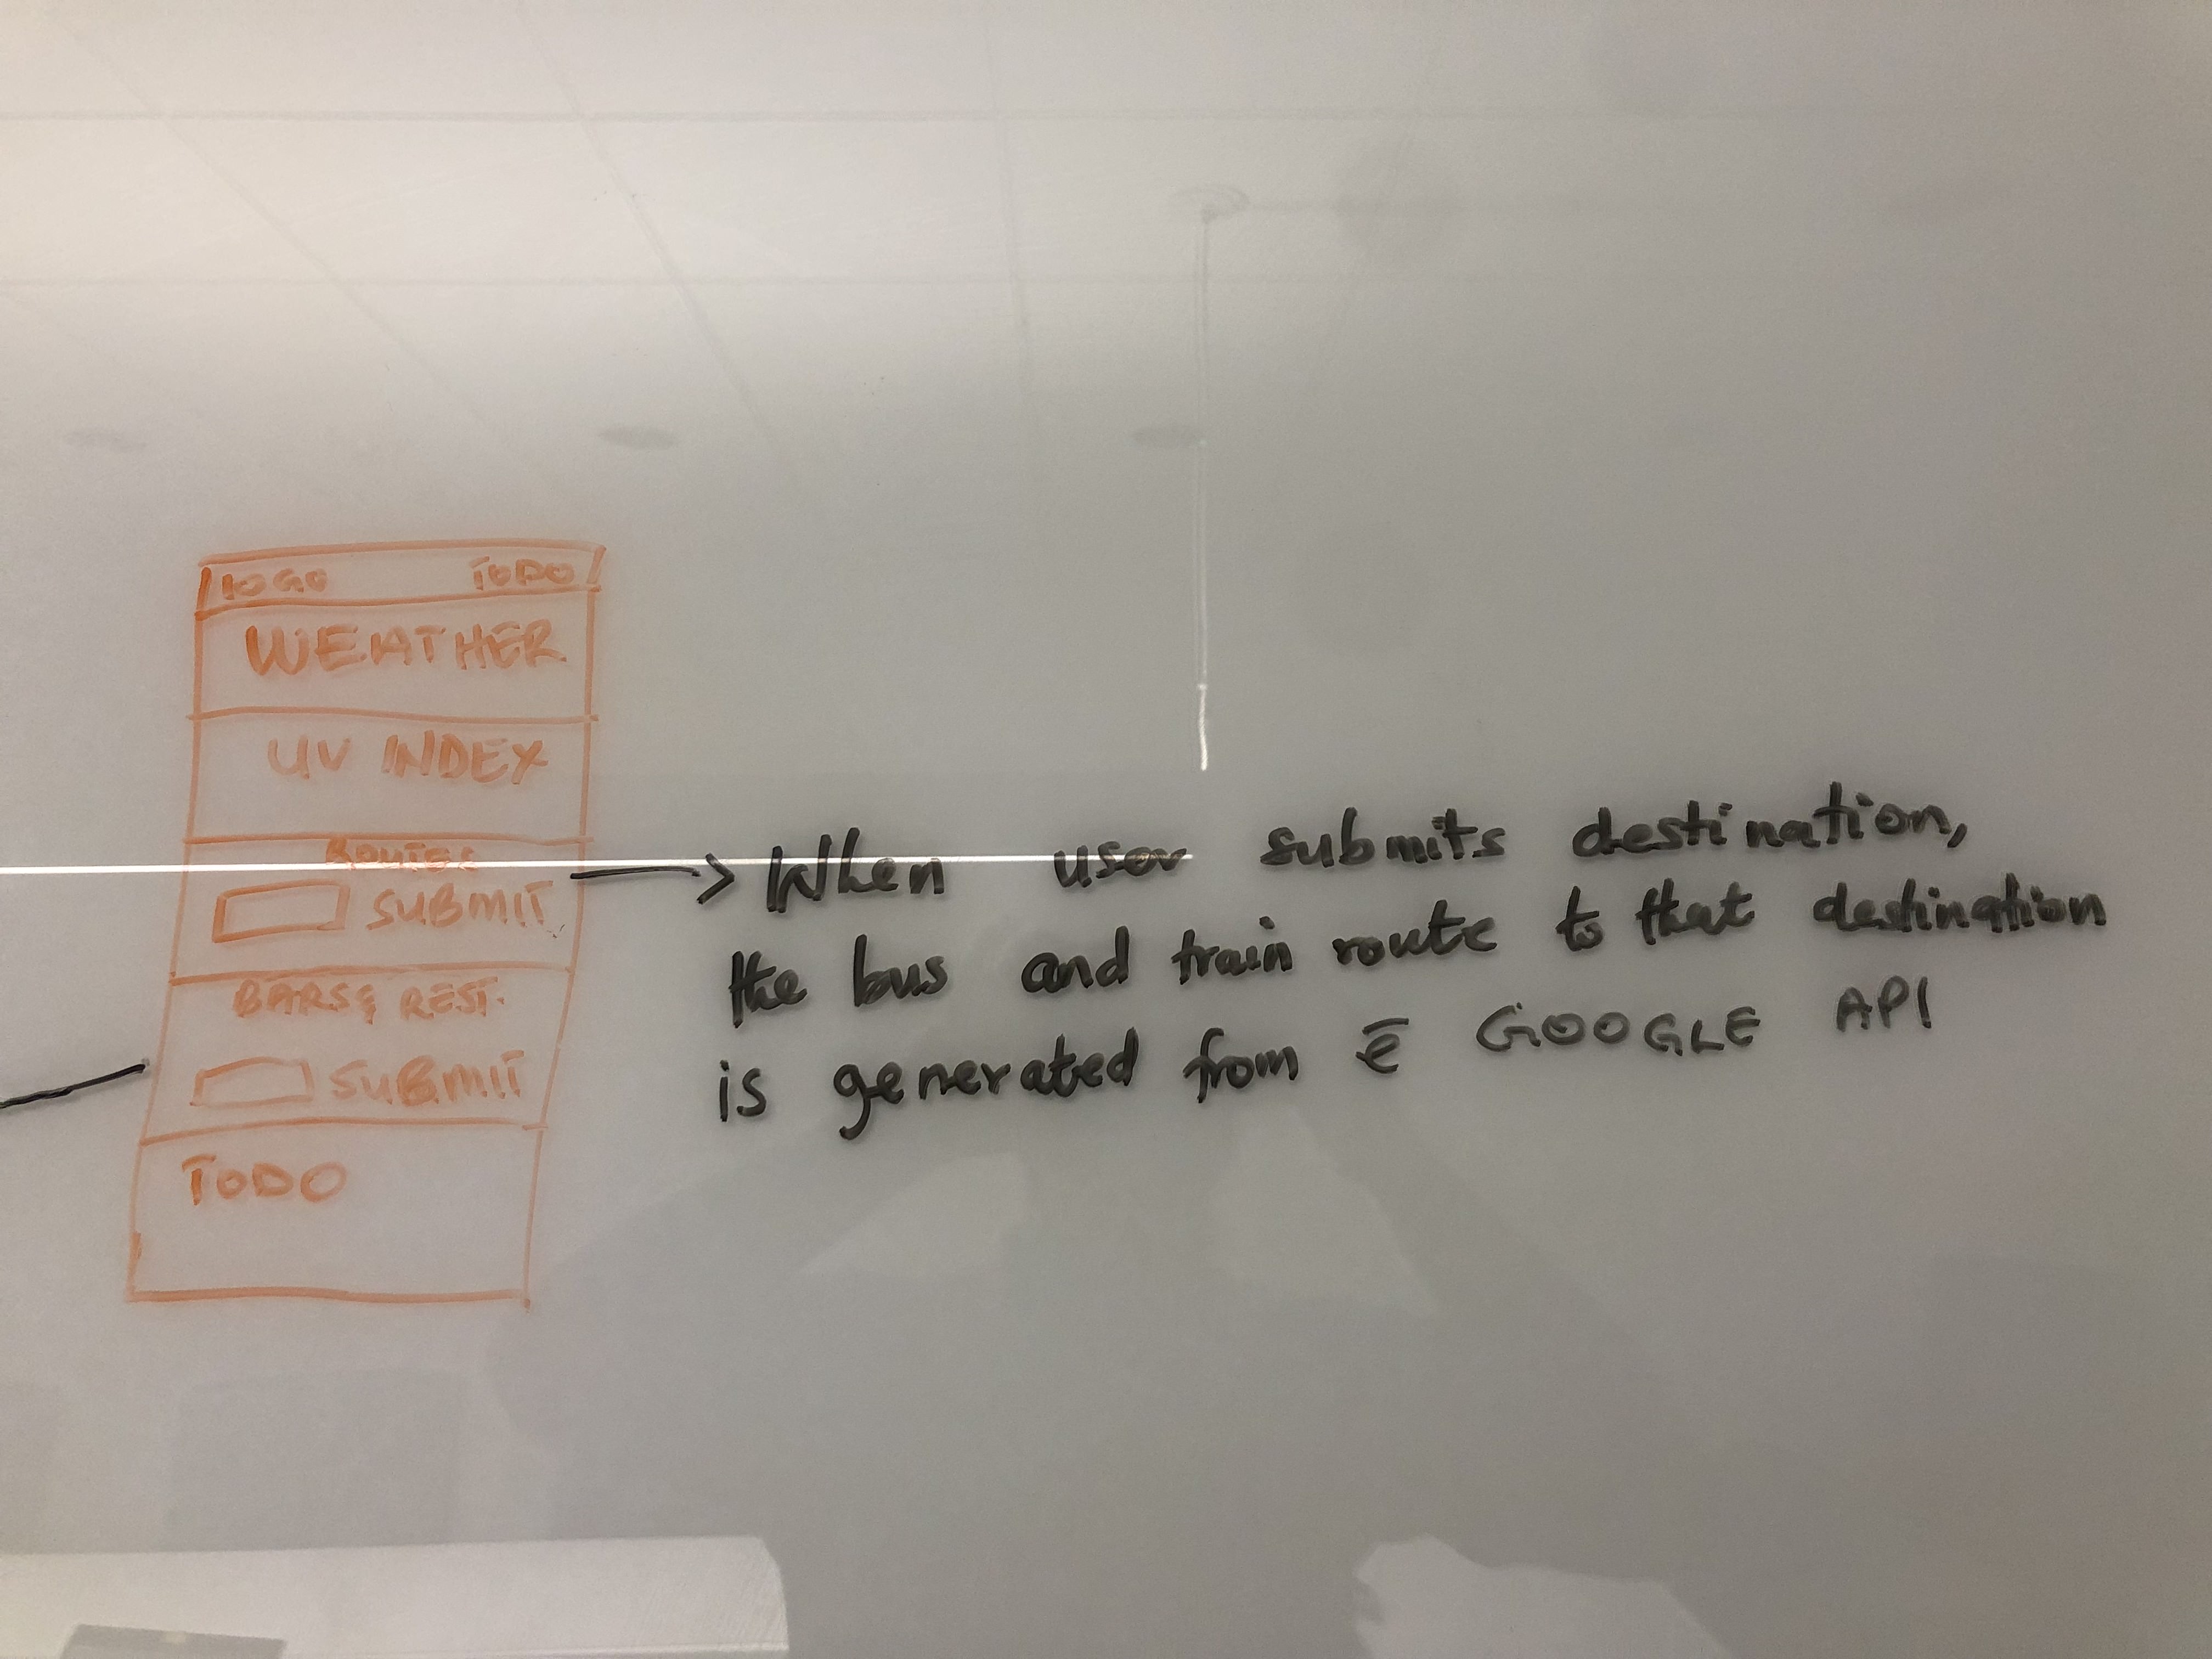 LOGO TODO
WEATHER
UV INDEX
ROUTES
SUBMIT
BARS & REST.
SUBMIT
TODO
When user submits destination,
the bus and train route to that destination
is generated from ē GOOGLE API